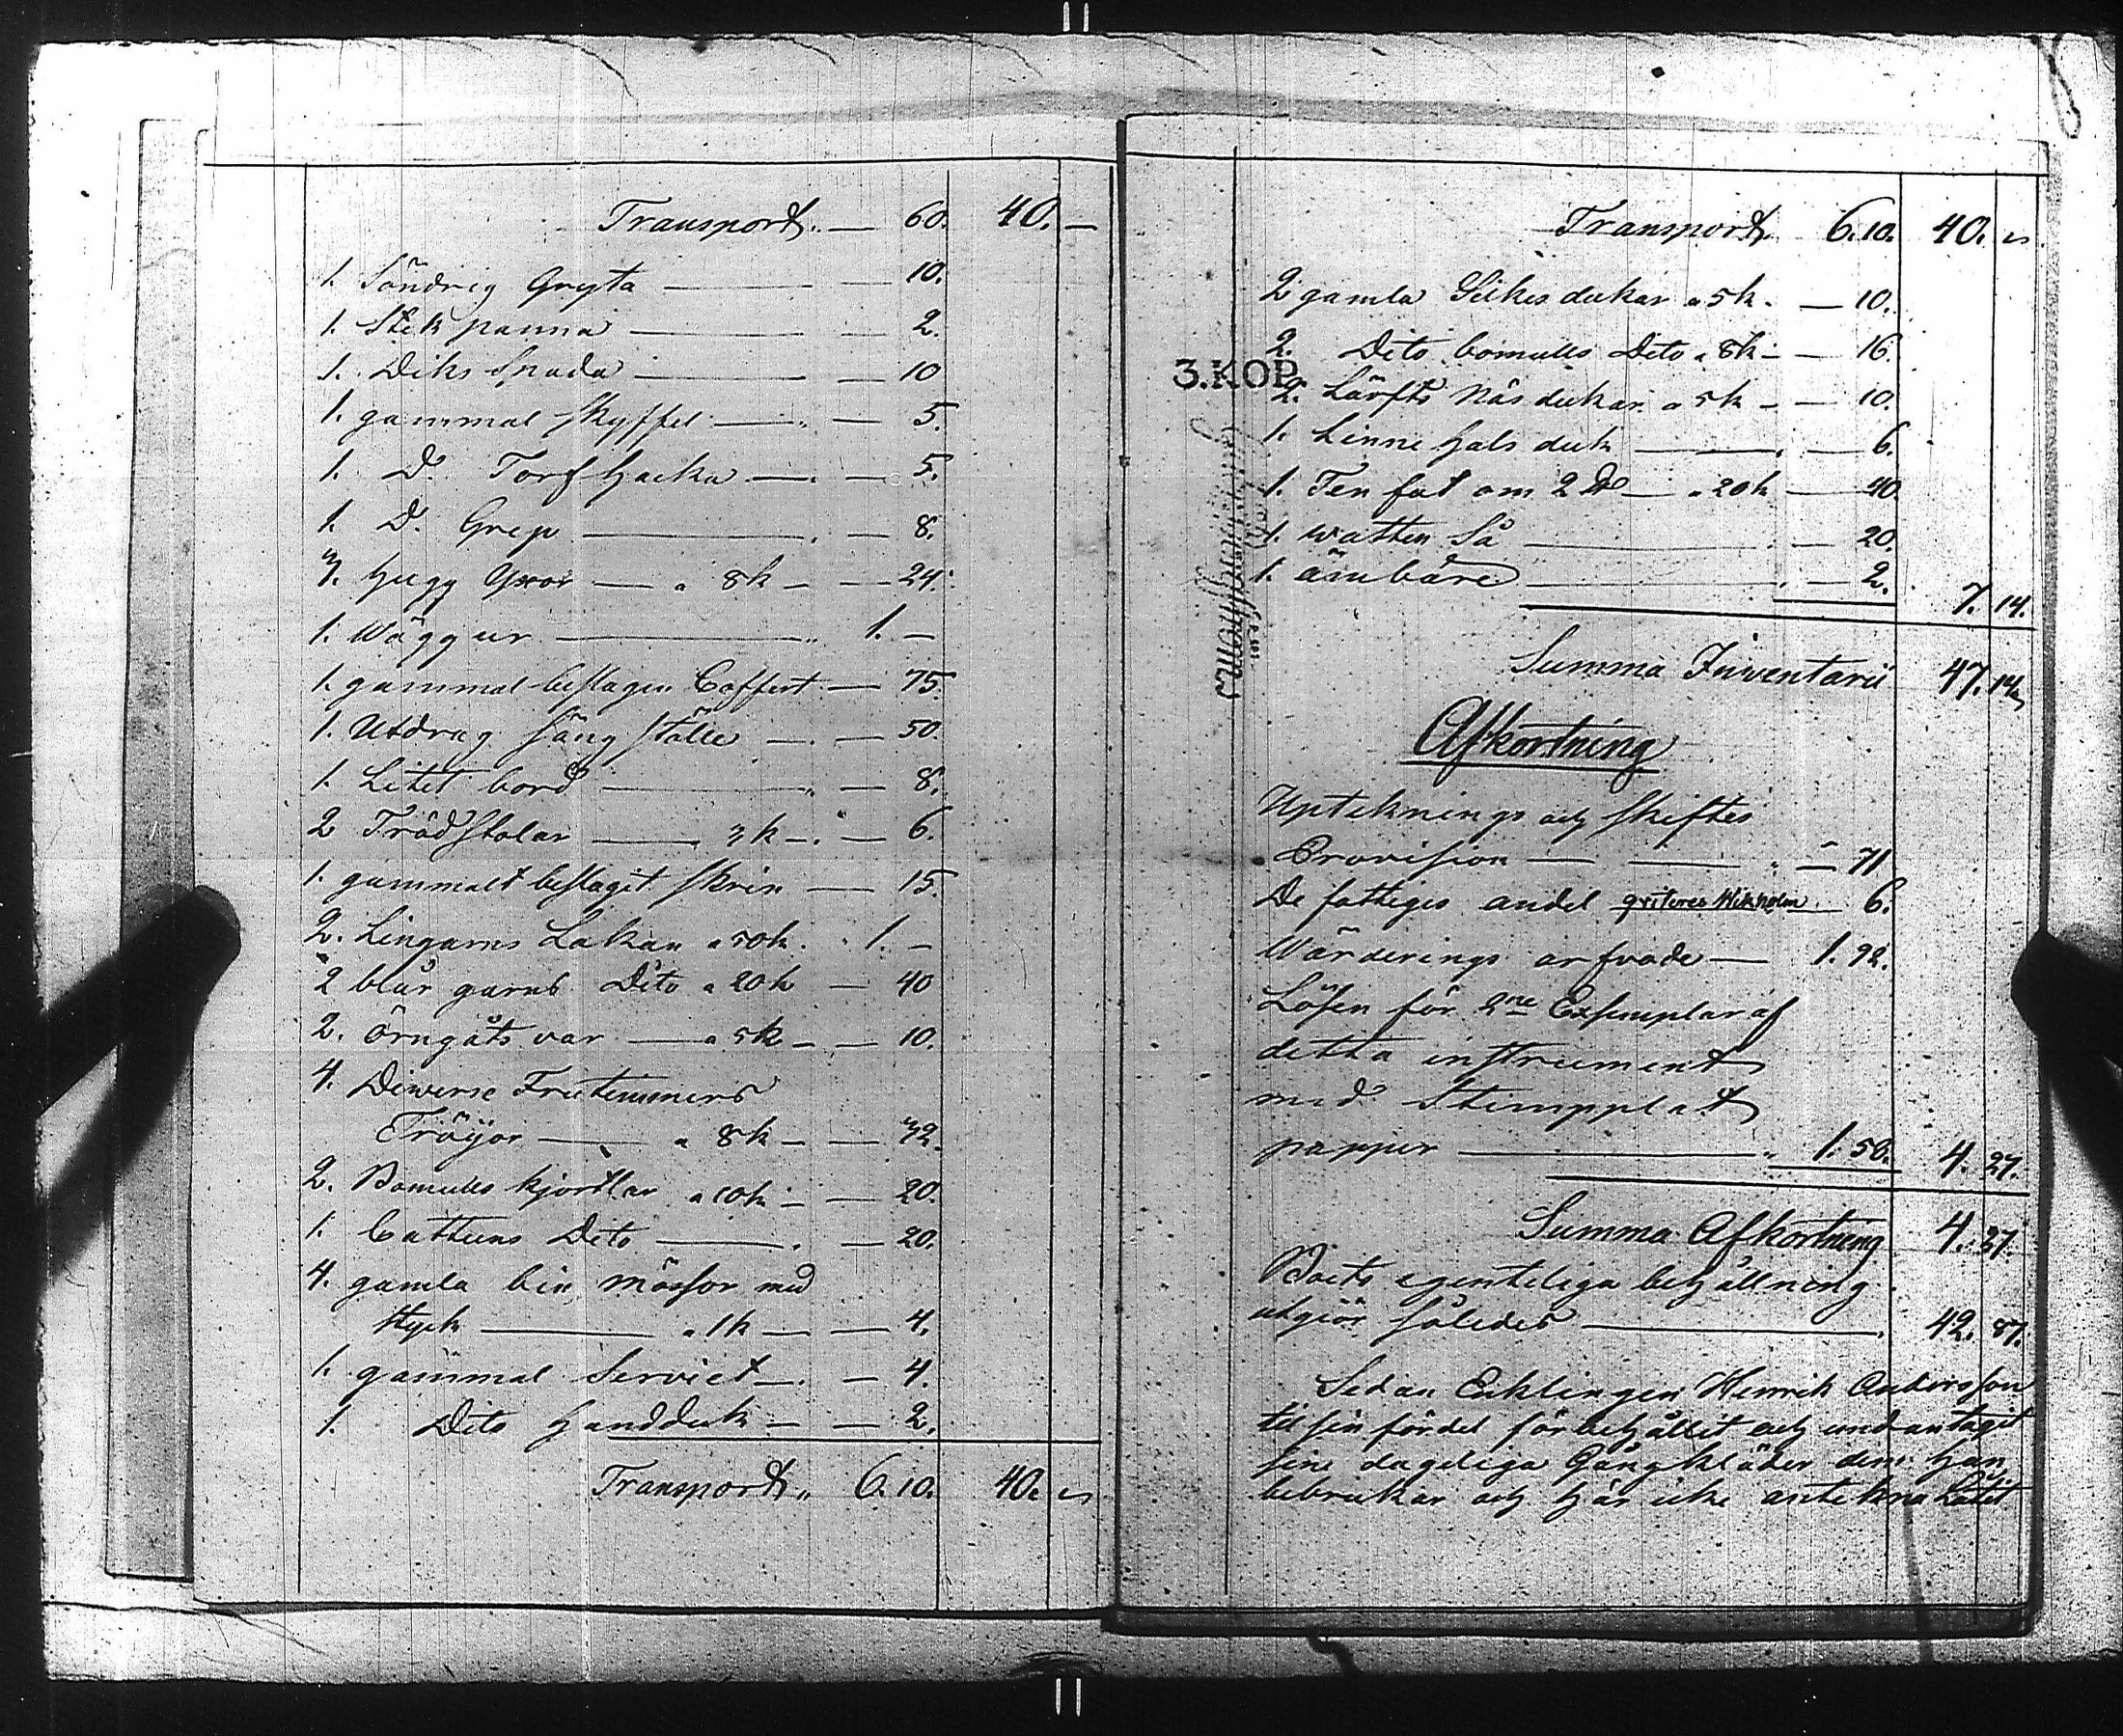 Transport. — 60. 40. —
1. Söndrig Gryta — 10.
1. Stekpanna — 2.
1. Diks Spada — 10
1. gammal skyffel — 5.
1. D:o Torf hacka — 5.
1. D:o Grep — 8.
3. hugg Yxor — a 8k — 24.
1. Wäggur — 1. —
1. gammal beslagen Coffert — 75.
1. Utdrag säng ställe — 50
1. Litet bord — 8.
2 Trädstolar — 3k — 6.
1. gammalt beslagit skrin — 15.
2. Lingarns Lakan a 50k. 1. —
2 blår garns Dito a 20k — 40
2. örngåts var — a 5k — 10.
4. Diverse Frutimmers
Tröijor — a 8k — 32.
2. Bomulls kjortlar a 10k — 20.
1. Cattuns Dito — 20.
4. gamla bin mössor med
styck — a 1k — 4.
1. gammal Serviet — 4.
1. Dito handduk — 2.
Transport „ 6.10. 40.
Transport 6.10. 40.
2 gamla Silkes dukar a 5k. — 10.
2. Dito bomulls Dito a 8k — 16.
3.KOP.
2. Lärfts Näsdukar a 5k — 10.
1. Linne halsduk — 6.
1. Ten fat om 2 — a 20k — 40.
1. watten Så — 20.
1. ämbare — 2.
7. 14.
Summa Inventarii 47. 14
Afkortning
Upteknings och skiftes
Provision — 71
De fattiges andel qviteres Wikholm 6.
Wärderings arfvode — 1. 92.
Lösen för 2ne Exsemplar af
detta instrument
med Stempplat
papper — 1. 58. 4. 27.
Summa Afkortning 4. 27.
Boets egenteliga behållning
utgiör således — 42. 87.
Sedan Enklingen Henrik Andersson
til sin fördel förbehållit och undantagit
sine dageliga Gångkläder dem han
bebrukar och här icke antekna Låtit